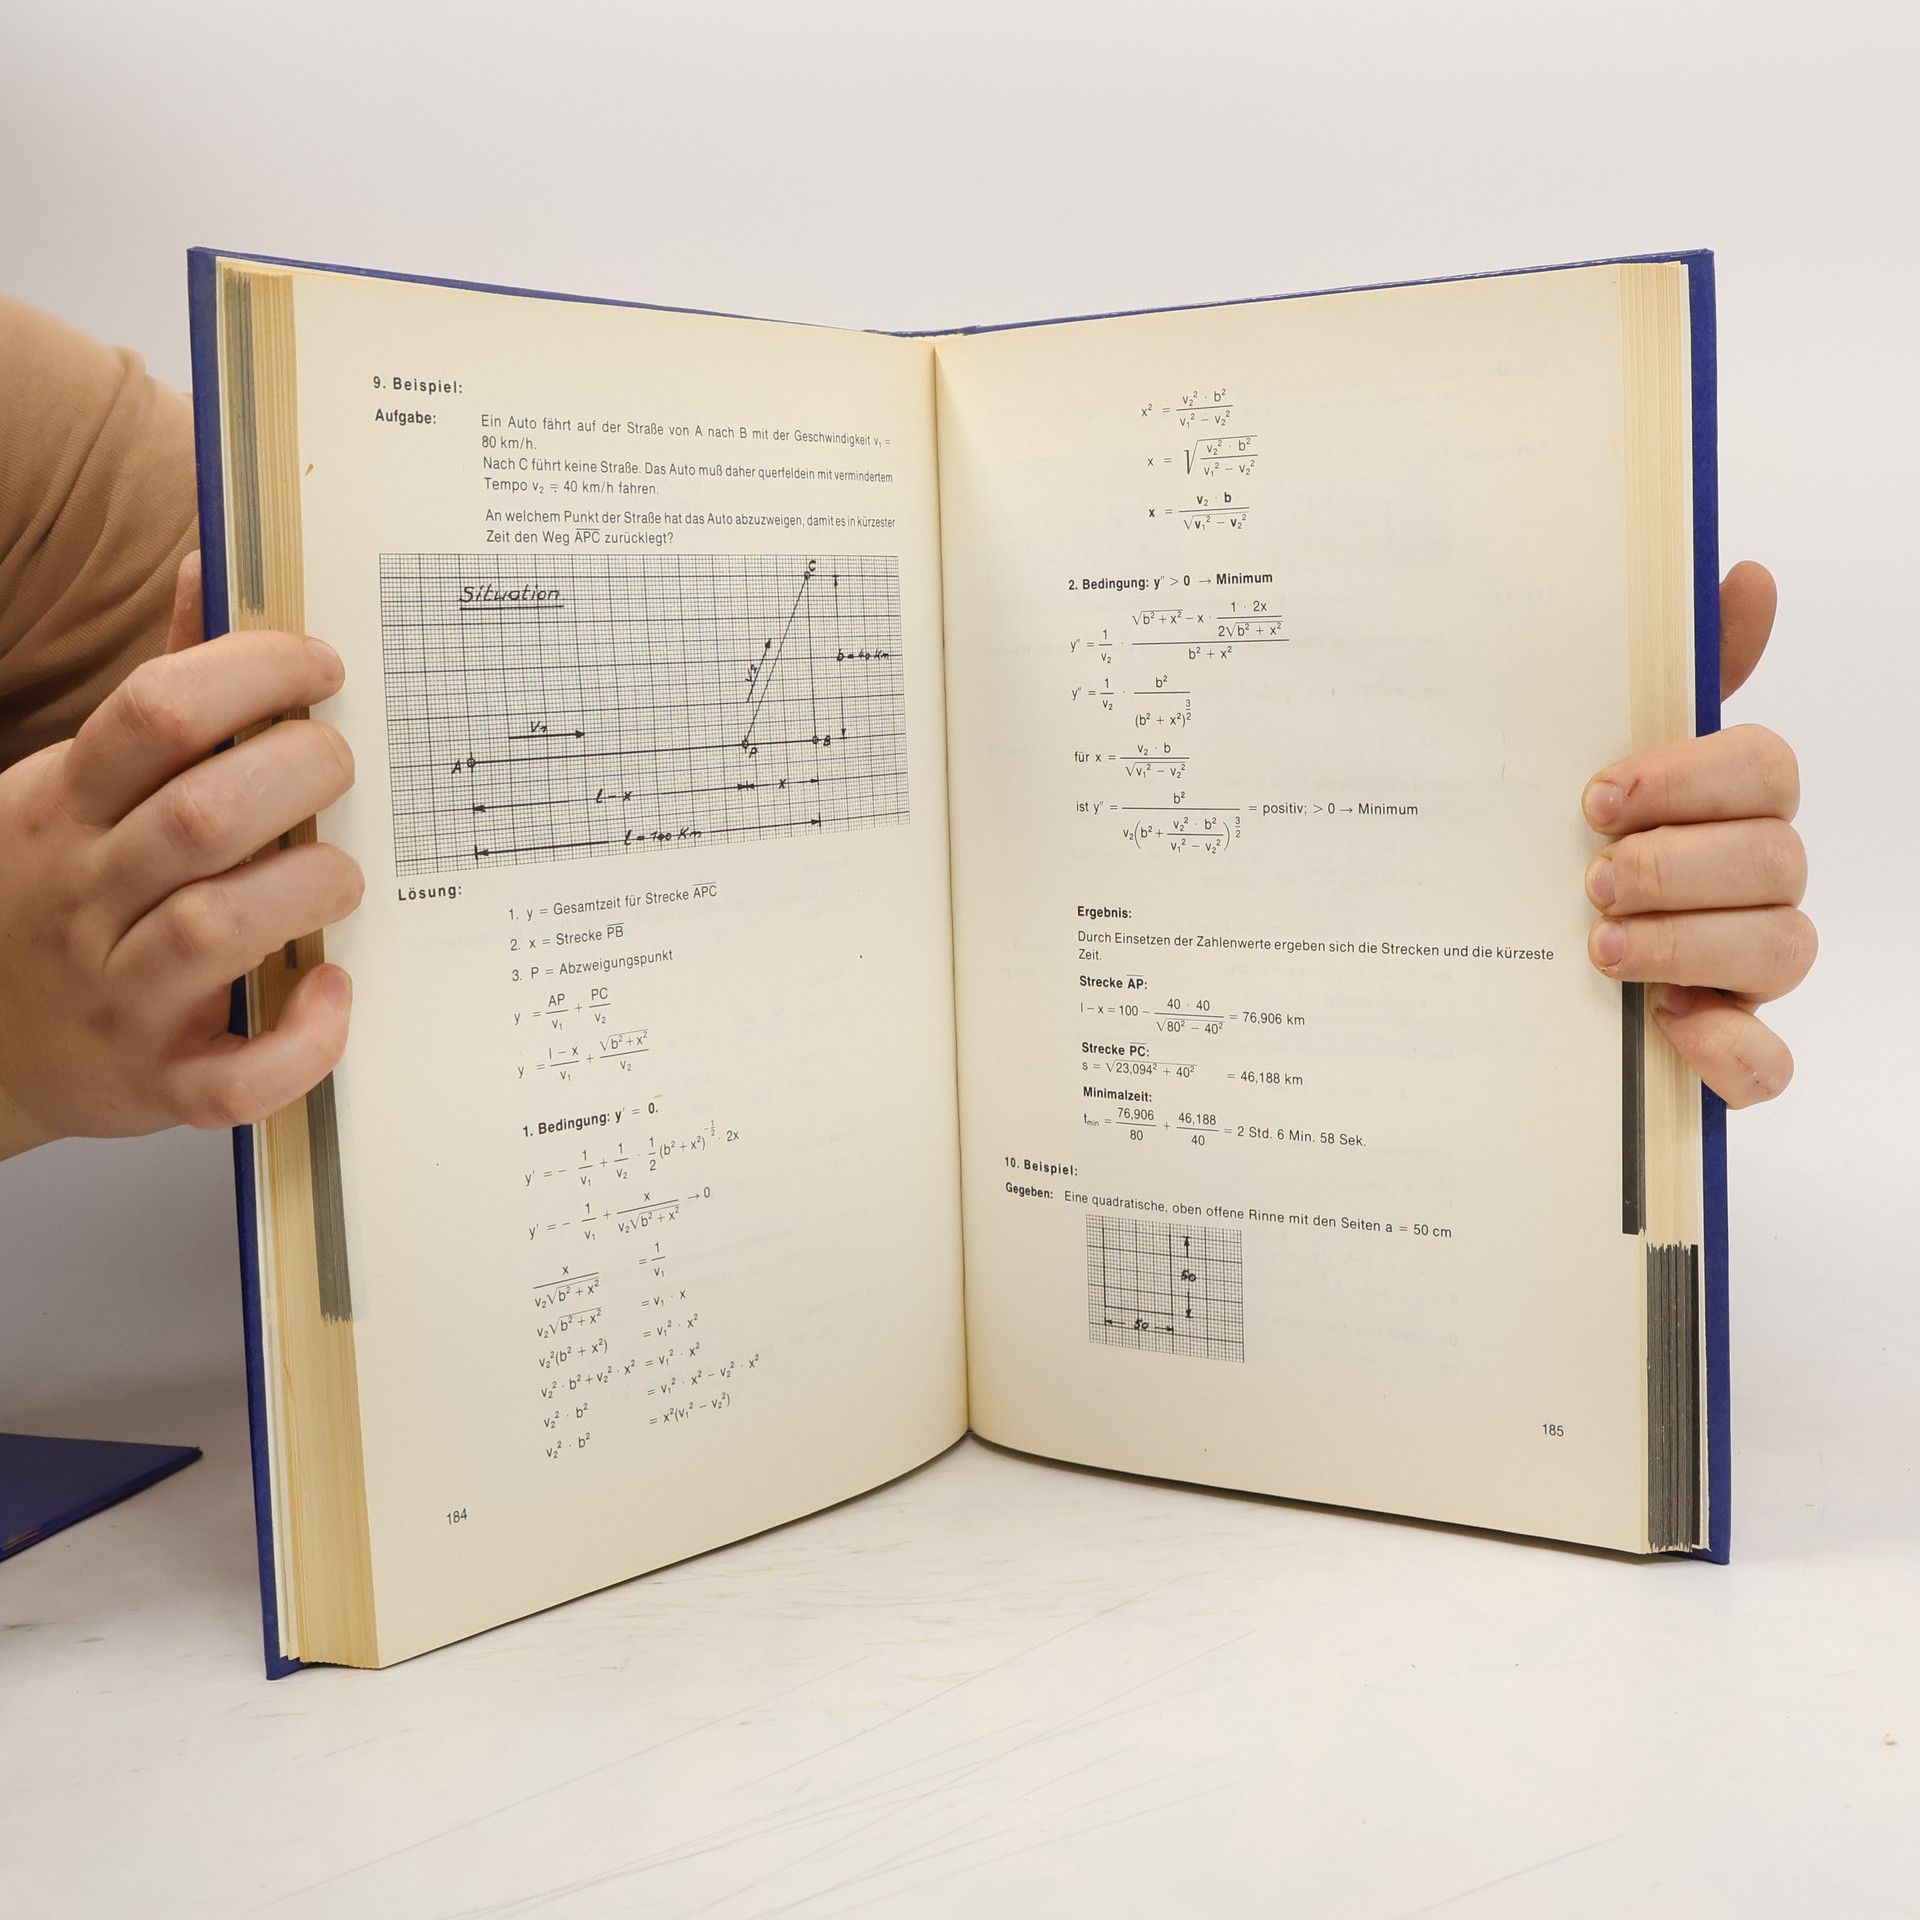 9. Beispiel:
Aufgabe: Ein Auto fährt auf der Straße von A nach B mit der Geschwindigkeit v₁ =
80 km/h.
Nach C führt keine Straße. Das Auto muß daher querfeldein mit vermindertem
Tempo v₂ = 40 km/h fahren.
An welchem Punkt der Straße hat das Auto abzuzweigen, damit es in kürzester
Zeit den Weg A̅P̅C̅ zurücklegt?
Situation
C
v₂
b = 40 Km
V₁
A P B
l - x x
l = 100 Km
Lösung:
1. y = Gesamtzeit für Strecke A̅P̅C̅
2. x = Strecke P̅B̅
3. P = Abzweigungspunkt
y = AP/v₁ + PC/v₂
y = (l – x)/v₁ + √(b² + x²)/v₂
1. Bedingung: y' = 0.
y' = – 1/v₁ + 1/v₂ · 1/2 (b² + x²)^(-1/2) · 2x
y' = – 1/v₁ + x/(v₂√(b² + x²)) → 0
x/(v₂√(b² + x²)) = 1/v₁
v₂√(b² + x²) = v₁ · x
v₂²(b² + x²) = v₁² · x²
v₂² · b² + v₂² · x² = v₁² · x²
v₂² · b² = v₁² · x² – v₂² · x²
v₂² · b² = x²(v₁² – v₂²)
184
x² = (v₂² · b²)/(v₁² – v₂²)
x = √((v₂² · b²)/(v₁² – v₂²))
x = (v₂ · b)/√(v₁² – v₂²)
2. Bedingung: y'' > 0 → Minimum
y'' = 1/v₂ · (√(b² + x²) – x · (1 · 2x)/(2√(b² + x²)))/(b² + x²)
y'' = 1/v₂ · b²/(b² + x²)^(3/2)
für x = (v₂ · b)/√(v₁² – v₂²)
ist y'' = b²/(v₂(b² + (v₂² · b²)/(v₁² – v₂²))^(3/2)) = positiv; > 0 → Minimum
Ergebnis:
Durch Einsetzen der Zahlenwerte ergeben sich die Strecken und die kürzeste
Zeit.
Strecke A̅P̅:
l – x = 100 – (40 · 40)/√(80² – 40²) = 76,906 km
Strecke P̅C̅:
s = √(23,094² + 40²) = 46,188 km
Minimalzeit:
t_min = 76,906/80 + 46,188/40 = 2 Std. 6 Min. 58 Sek.
10. Beispiel:
Gegeben: Eine quadratische, oben offene Rinne mit den Seiten a = 50 cm
50
50
185